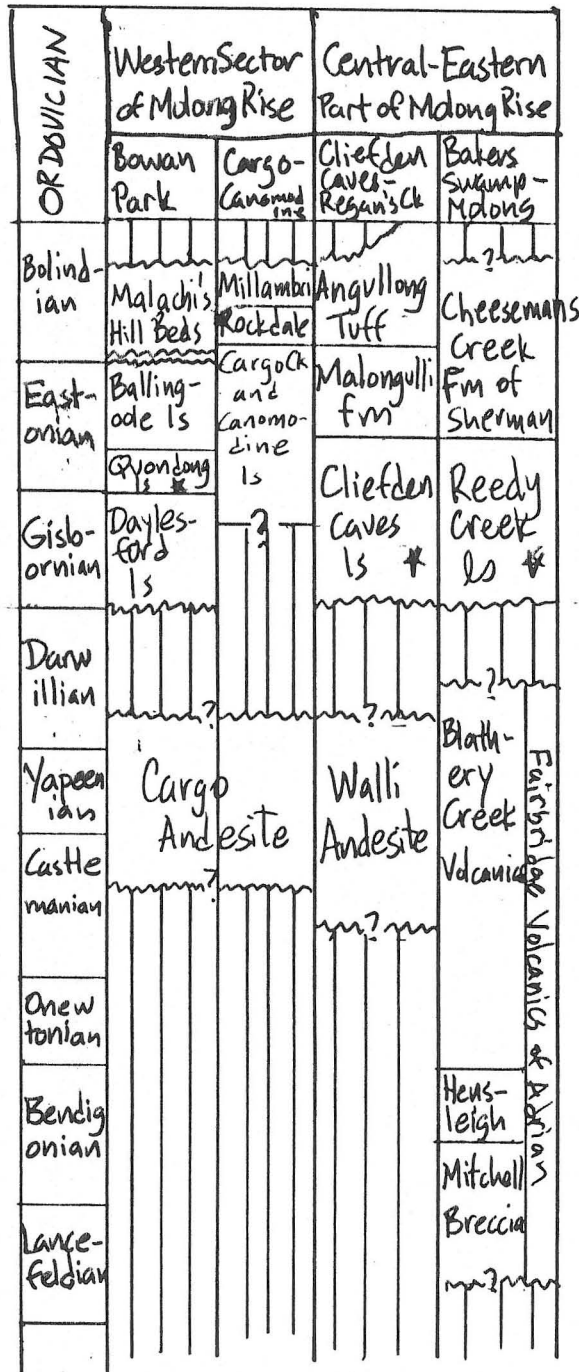 ORDOVICIAN
Western Sector
of Molong Rise
Central-Eastern
Part of Molong Rise
Bowan
Park
Cargo-
Canomod
ine
Cliefden
Caves-
Regan's Ck
Bakers
Swamp-
Molong
Bolind-
ian
East-
onian
Gisb-
ornian
Darw
illian
Yapeen
ian
Castle
manian
Onew
tonian
Bendig
onian
Lance-
feldian
Malachi's
Hill Beds
Balling-
oole ls
Quondong
ls ★
Dayles-
ford
ls
Millambri
Rockdale
Cargo Ck
and
Canomo-
dine
ls
?
?
Cargo
Andesite
?
Angullong
Tuff
Malongulli
fm
Cliefden
Caves
ls ★
?
Walli
Andesite
?
?
Cheesemans
Creek
Fm of
Sherman
Reedy
Creek
ls ★
?
Blath-
ery
Creek
Volcanics
Hens-
leigh
Mitchell
Breccia
?
Fairbridge Volcanics of Adrian